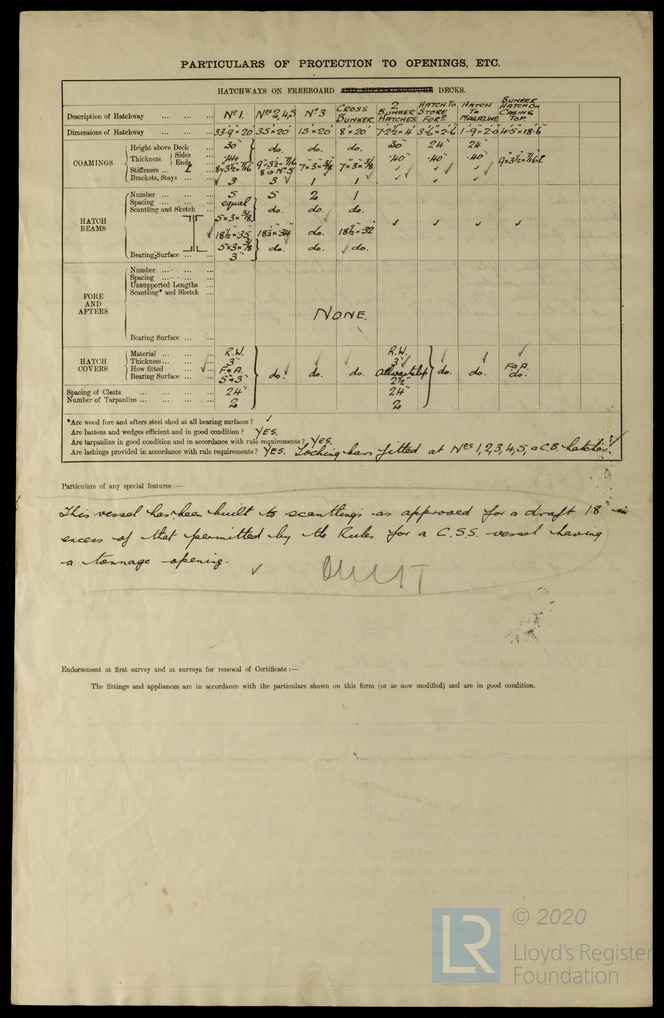 PARTICULARS OF PROTECTION TO OPENINGS, ETC.
HATCHWAYS ON FREEBOARD AND SUPERSTRUCTURE DECKS.
Description of Hatchway ... ... ... Nº 1. Nºs 2,4,5 Nº 3 CROSS BUNKER 2 BUNKER HATCHES HATCH TO STORE FORD HATCH TO MAGAZINE BUNKER HATCH ON CASING TOP
Dimensions of Hatchway ... ... ... 33'-9" × 20' 35' × 20' 15' × 20' 8' × 20' 7'-2½" × 4' 3'-6" × 2'-6" 1'-9" × 2'-0 4'-5" × 18'-6"
COAMINGS
Height above Deck ... 30" do. do. do. 30" 24" 24"
Thickness Sides Ends .44 .40" .40" .40"
Stiffeners ... 8×3½×7/16 9"×3½"×7/16 8 @ Nº 5 7×3×3/8 7×3×3/8 9×3½×7/16
Brackets, Stays ... ... 3 3 1 1
HATCH BEAMS
Number ... ... ... 5 5 2 1
Spacing ... ... ... equal
Scantling and Sketch ... 5×3×3/8 do. do. do.
18½×.35 18½×.34 do. 18½×.32
5×3×3/8 do. do. do.
Bearing Surface ... ... 3"
FORE AND AFTERS
Number ... ... ...
Spacing ... ... ...
Unsupported Lengths ...
Scantling* and Sketch ...
NONE.
Bearing Surface ... ...
HATCH COVERS
Material ... ... ... R.W. R.W.
Thickness... ... ... 3" 3"
How fitted ... ... F & A. do. do. do. do. do. F & A.
Bearing Surface ... ... 3" 2½" do.
Spacing of Cleats ... ... ... ... 24" 24"
Number of Tarpaulins ... ... ... ... 2 2
*Are wood fore and afters steel shod at all bearing surfaces ?
Are battens and wedges efficient and in good condition ? YES.
Are tarpaulins in good condition and in accordance with rule requirements ? YES.
Are lashings provided in accordance with rule requirements ? YES. Locking bars fitted at Nºs 1,2,3,4,5, & C.B. hatches.
Particulars of any special features :—
This vessel has been built to scantlings as approved for a draft 18" in
excess of that permitted by the Rules for a C.S.S. vessel having
a tonnage opening.
Endorsement at first survey and at surveys for renewal of Certificate :—
The fittings and appliances are in accordance with the particulars shown on this form (or as now modified) and are in good condition.
LR
© 2020
Lloyd's Register
Foundation